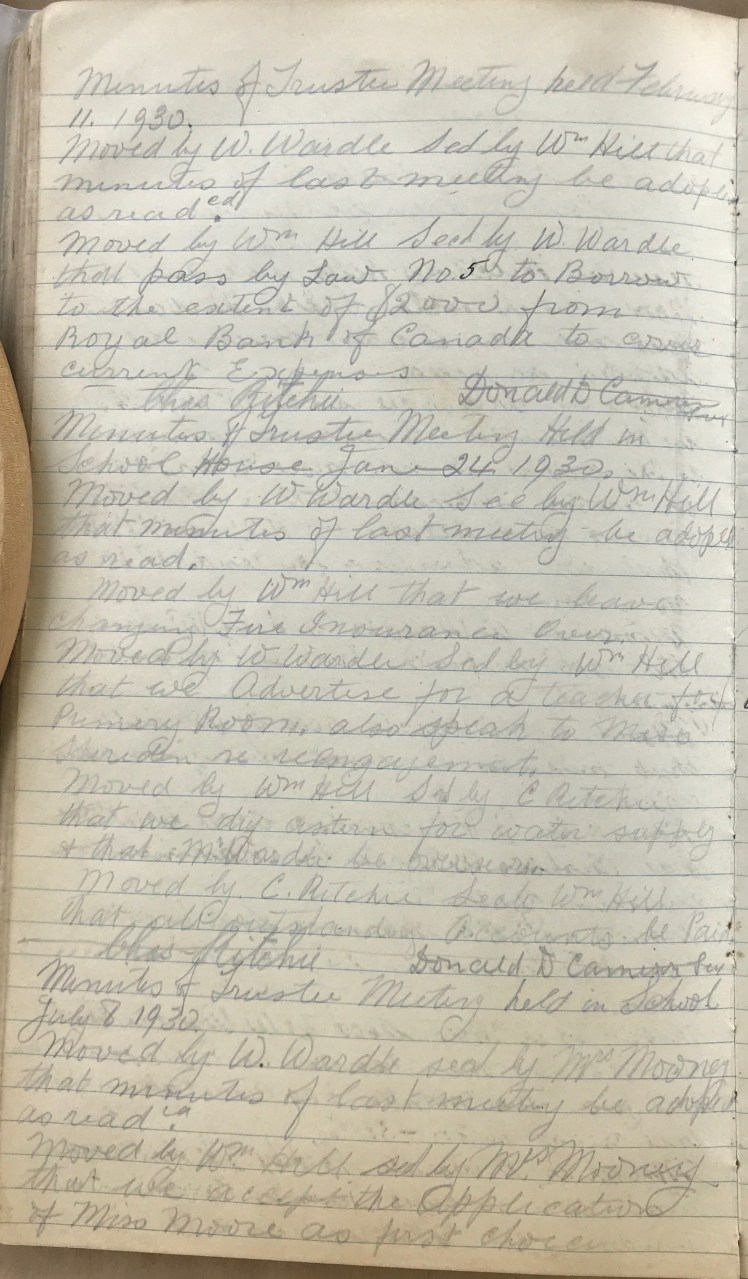 Minutes of Trustee Meeting held February
11. 1930.
Moved by W. Wardle Secd by Wm Hill that
minutes of last meeting be adopted
as read.
Moved by Wm Hill Secd by W. Wardle
that pass by Law No. 5 to Borrow
to the extent of $2000 from
Royal Bank of Canada to cover
current Expenses
Chas Ritchie Donald D Cameron
Minutes of Trustee Meeting Held in
School House Jan 24 1930.
Moved by W Wardle Sec by Wm Hill
that minutes of last meeting be adopted
as read.
Moved by Wm Hill that we leave
changing Fire Insurance Over.
Moved by W Wardle Scd by Wm Hill
that we Advertise for a teacher for
Primery Room, also speak to Miss
re reengagement.
Moved by Wm Hill Scd by C Ritchie
that we dig cistern for water supply
& that Mr Wardle be overseer.
Moved by C. Ritchie Wm Hill
that all outstanding Accounts be Paid
Chas Ritchie Donald D Cameron Sec
Minutes of Trustee Meeting held in School
July 8 1930
Moved by W. Wardle secd by Mrs Mooney
that minutes of last meeting be adopted
as read.
Moved by Wm Hill secd by Mrs Mooney
that we accept the Application
of Miss Moore as first choice